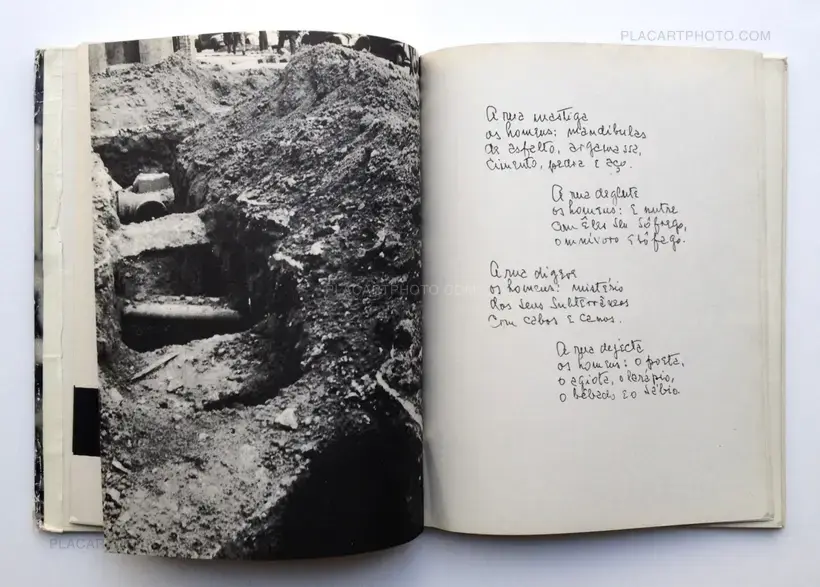 PLACARTPHOTO.COM
A rua mastiga
os homens: mandíbulas
de asfalto, argamassa,
cimento, pedra e aço.
A rua deglute
os homens: e nutre
com êles seu sôfrego,
omnívoro esôfago.
A rua digere
os homens: mistério
dos seus subterrâneos
com cabos e canos.
A rua dejecta
os homens: o poeta,
o agiota, o larápio,
o bêbado e o sábio.
PLACARTPHOTO.COM
PLACARTPHOTO.COM